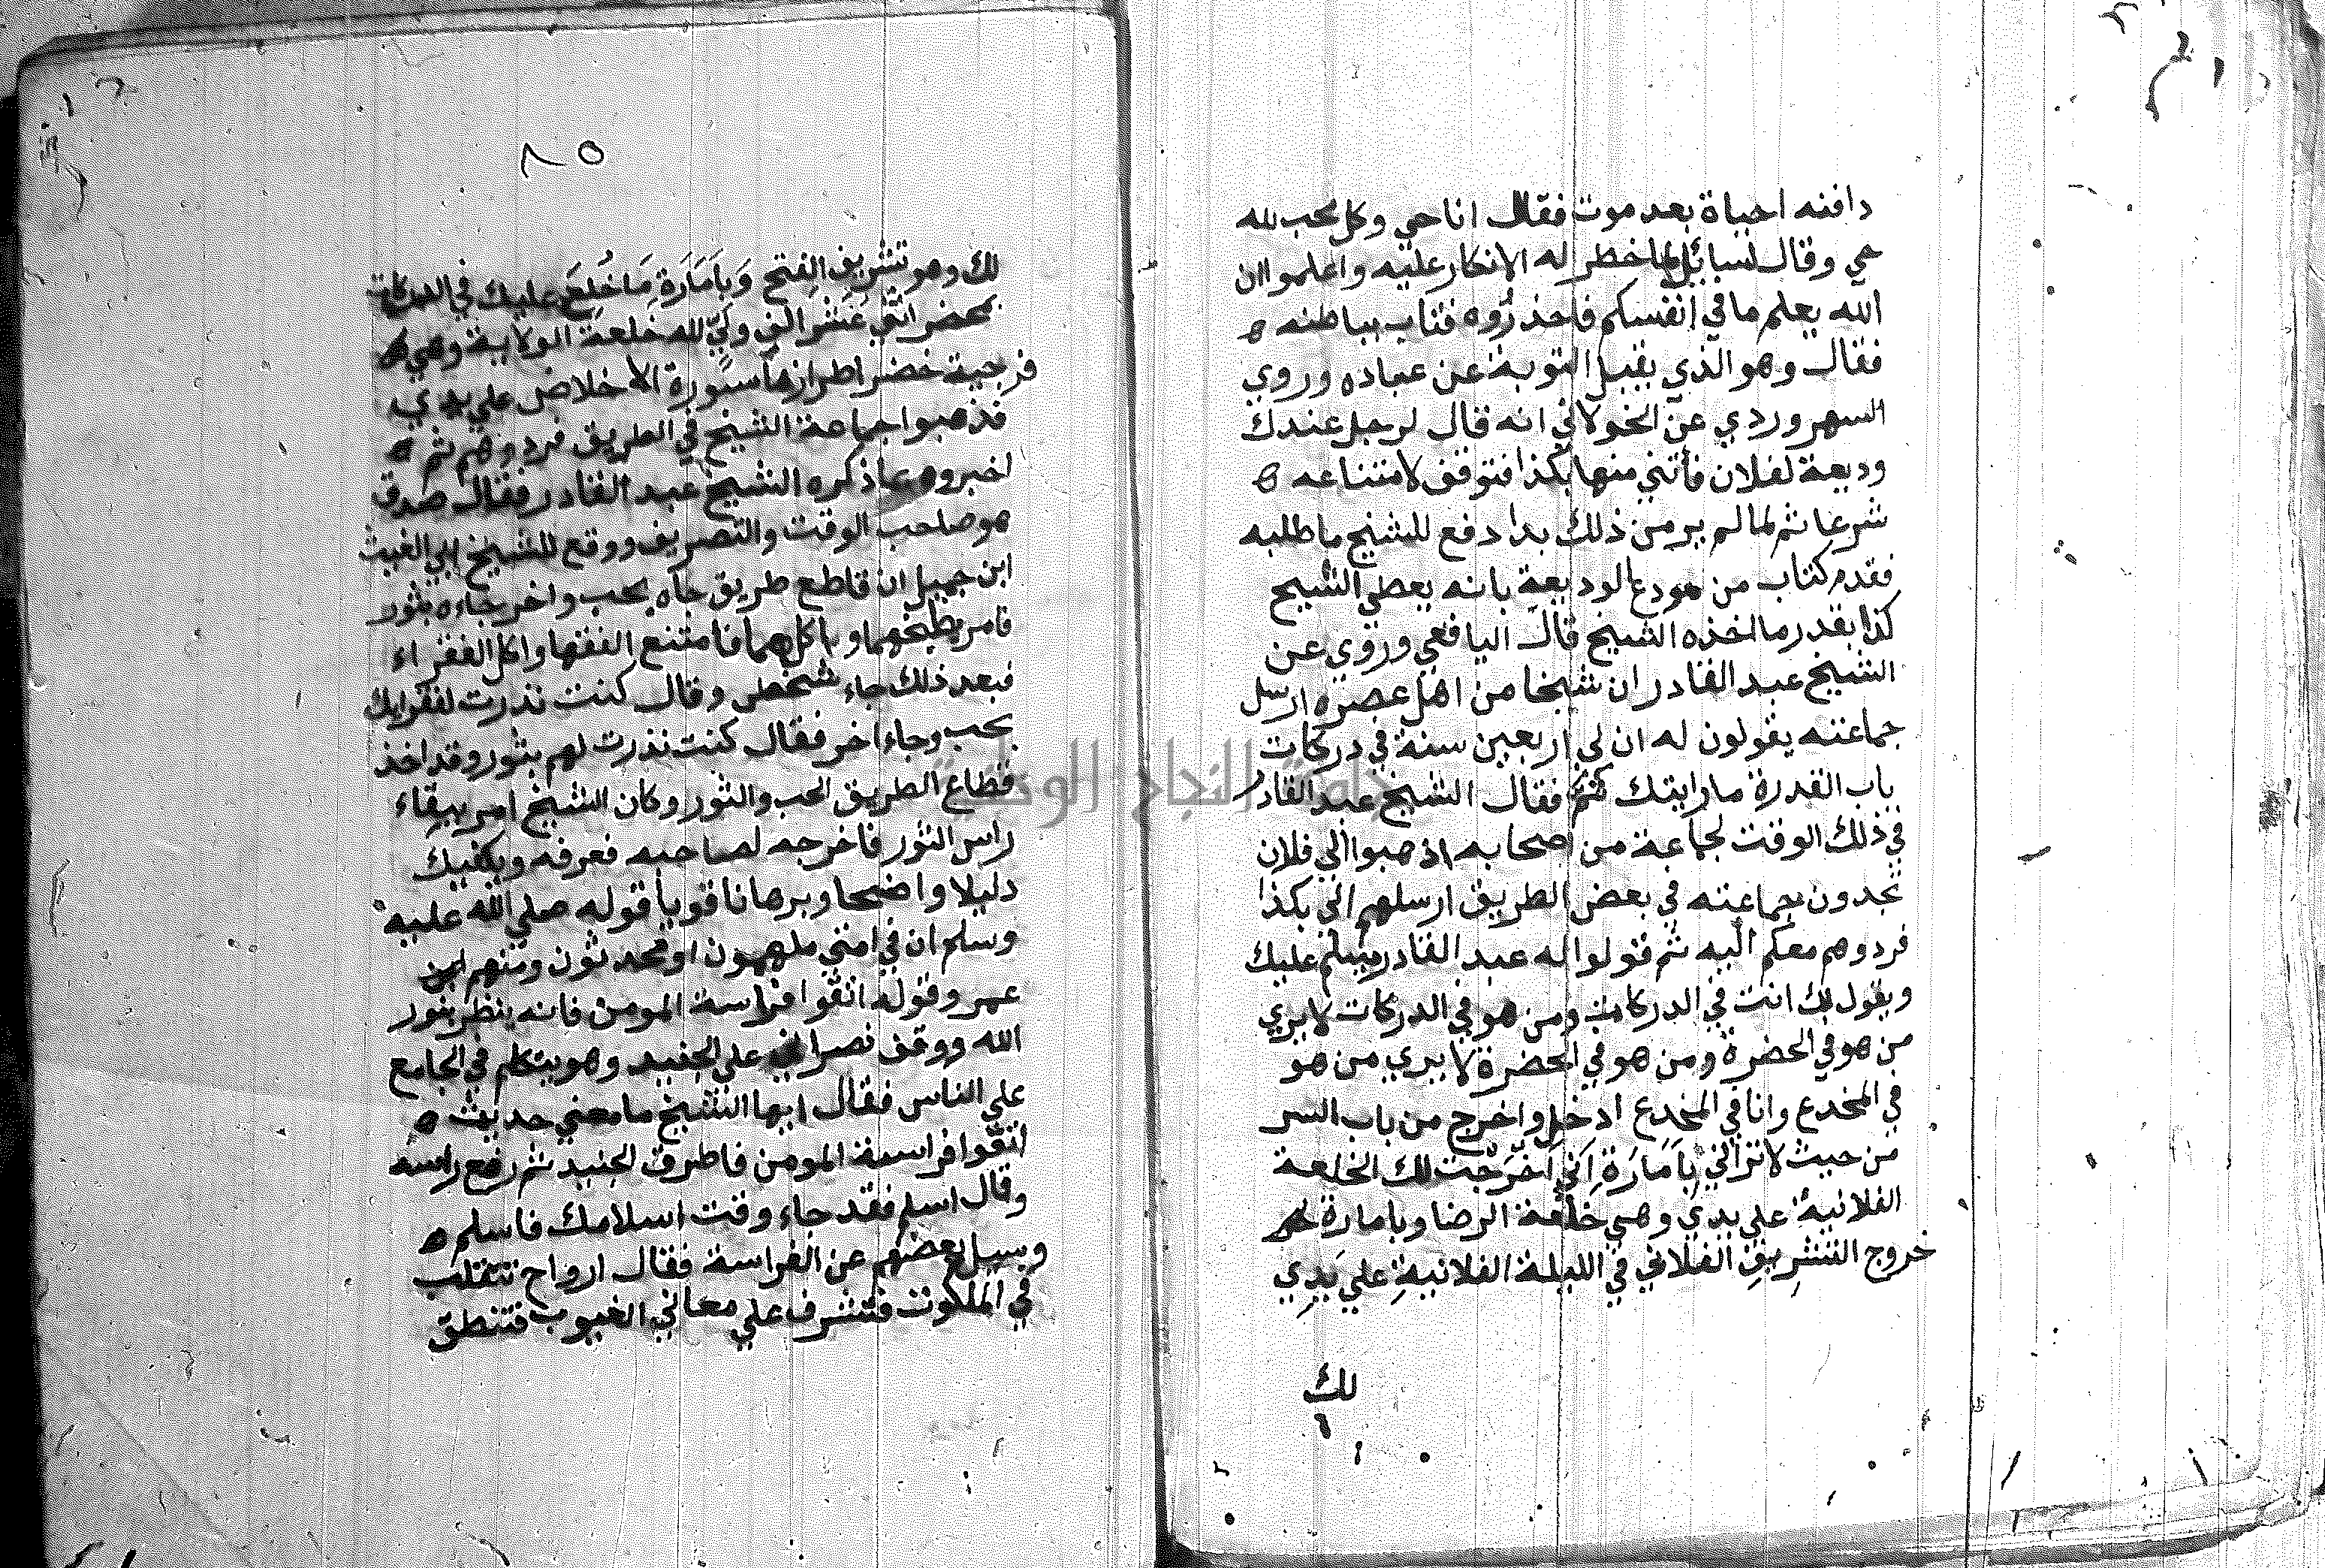 دافنه احياة بعد موت فقال انا حي وكل محب لله
حي وقال لسايل لما خطر له الانكار عليه واعلموا ان
الله يعلم ما في انفسكم فاحذروه فتاب بباطنه ه
فقال وهو الذي يقبل التوبة عن عباده وروي
السهروردي عن الخولاني انه قال لرجل عندك
وديعة لفلان فأتني منها بكذا فتوقف لامتناعه ه
شرعا ثم لما لم ير من ذلك بدا دفع للشيخ ما طلبه
فقدم كتاب من مودع الوديعة بانه يعطي الشيخ
كذا بقدر ما اخذه الشيخ قال اليافعي وروي عن
الشيخ عبد القادر ان شيخا من اهل عصره ارسل
جماعته يقولون له ان لي اربعين سنة في دركات
باب القدرة ما رايتك ثم فقال الشيخ عبد القادر
في ذلك الوقت لجماعة من اصحابه اذهبوا الي فلان
تجدون جماعته في بعض الطريق ارسلهم الي بكذا
فردوهم معكم اليه ثم قولوا له عبد القادر يسلم عليك
ويقول لك انت في الدركات ومن هو في الدركات لا يري
من هو في الحضرة ومن هو في الحضرة لا يري من هو
في المخدع وانا في المخدع ادخل واخرج من باب السر
من حيث لا تراني بِاَمَارَةِ اَني اَخْرَجْت لك الخلعة
الفلانية علي يدي وهي خلعة الرضا وبامارة
خروج التشريف الفلاني في الليلة الفلانيةِ علي يَدِي
لك
٨٥
لك وهو تشريف الفتح وَبأَمَارَةِ مَا خُلِعَ عليك في الدركات
بمحضر اثني عَشَر الف وليّ لله خلعة الولاية وهي ه
فرجية خضرا طرازها سورة الاخلاص علي يدي
فذهبوا جماعة الشيخ في الطريق فردوهم ثم ه
اخبروه بما ذكره الشيخ عبد القادر فقال صدق
هو صاحب الوقت والتصريف ووقع للشيخ ابي الغيث
ابن جميل ان قاطع طريق جاه بحب واخر جاءه بثور
فامر بطبخهما وباكلهما فامتنع الفقها واكل الفقراء
فبعد ذلك جاء شخص وقال كنت نذرت لفقرايك
بحب وجاء اخر فقال كنت نذرت لهم بثور وقد اخذ
قطاع الطريق الحب والثور وكان الشيخ امر ببقاء
راس الثور فاخرجه لصاحبه فعرفه ويكفيك
دليلا واضحا وبرهانا قويا قوله صلي الله عليه
وسلم ان في امتي ملهمون او محدثون ومنهم
عمر وقوله اتقوا فراسة المومن فانه ينظر بنور
الله ووقف نصراني علي الجنيد وهو يتكلم في الجامع
علي الناس فقال ايها الشيخ ما معني حديث ه
اتقوا فراسة المومن فاطرق الجنيد ثم رفع راسه
وقال اسلم فقد جاء وقت اسلامك فاسلم ه
وسيل بعضهم عن الفراسة فقال ارواح تتقلب
في الملكوت فتشرف علي معاني الغيوب فتنطق
جامعة النجاح الوطنية